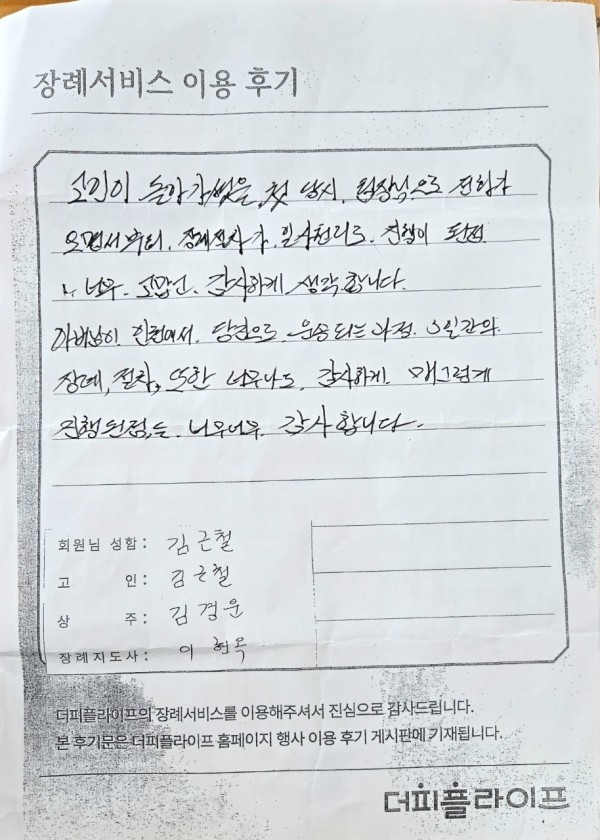 장례서비스 이용 후기
고인이 돌아가셨을 첫 당시. 팀장님으로 전화가
오면서부터. 장례절차가 일사천리로. 진행이 된점
너무. 고맙고. 감사하게 생각합니다.
아버님이 인천에서. 당진으로. 운송되는 과정. 3일간의
장례, 절차, 또한 너무나도. 감사하게. 매그럽게
진행된점,는 너무너무. 감사합니다.
회원님 성함 : 김근철
고 인 : 김근철
상 주 : 김경운
장례지도사 : 이
더피플라이프의 장례서비스를 이용해주셔서 진심으로 감사드립니다.
본 후기문은 더피플라이프 홈페이지 행사 이용 후기 게시판에 기재됩니다.
더피플라이프